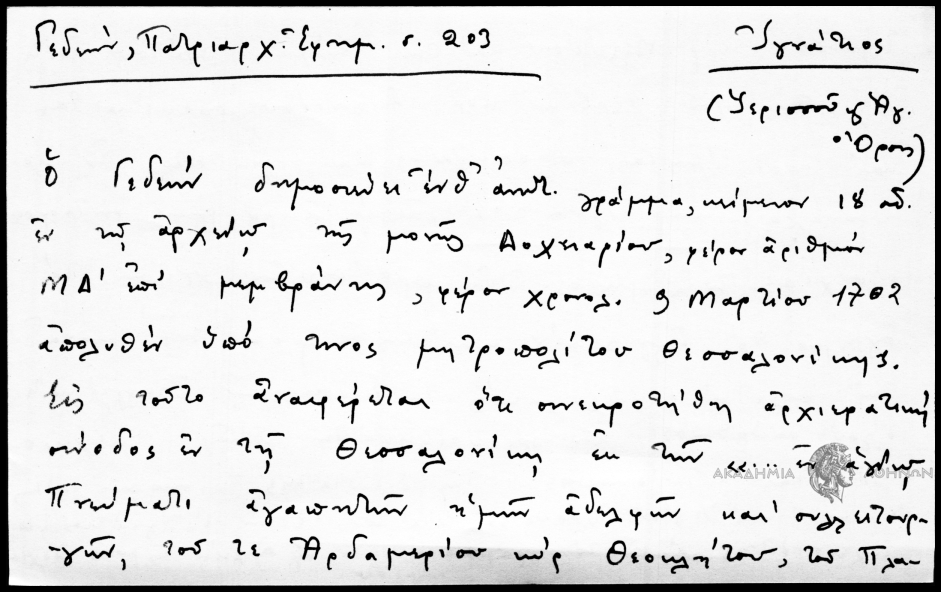 Γεδεών, Πατριαρχ. Εφημ. σ. 203
Ἰγνάτιος
(Ἱερισσοῦ & Ἁγ.
Ὄρους)
Ὁ Γεδεὼν δημοσιεύει ἐνθ' ἀνωτ. γράμμα, κείμενον 18
ἐν τῷ ἀρχείῳ τῆς μονῆς Δοχειαρίου, φέρον ἀριθμὸν
ΜΔ' ἐπὶ μεμβράνης, φέρον χρονολ. 9 Μαρτίου 1702
ἀπολυθὲν ὑπό τινος μητροπολίτου Θεσσαλονίκης.
Εἰς τοῦτο ἀναφέρεται ὅτι συνεκροτήθη ἀρχιερατικὴ
σύνοδος ἐν τῇ Θεσσαλονίκῃ ἐκ τῶν ἐν ἁγίῳ
Πνεύματι ἀγαπητῶν ἡμῶν ἀδελφῶν καὶ συλλειτουρ-
-γῶν, τοῦ τε Ἀρδαμερίου κὺρ Θεοκλήτου, τοῦ Πλα-
ΑΚΑΔΗΜΙΑ ΑΘΗΝΩΝ